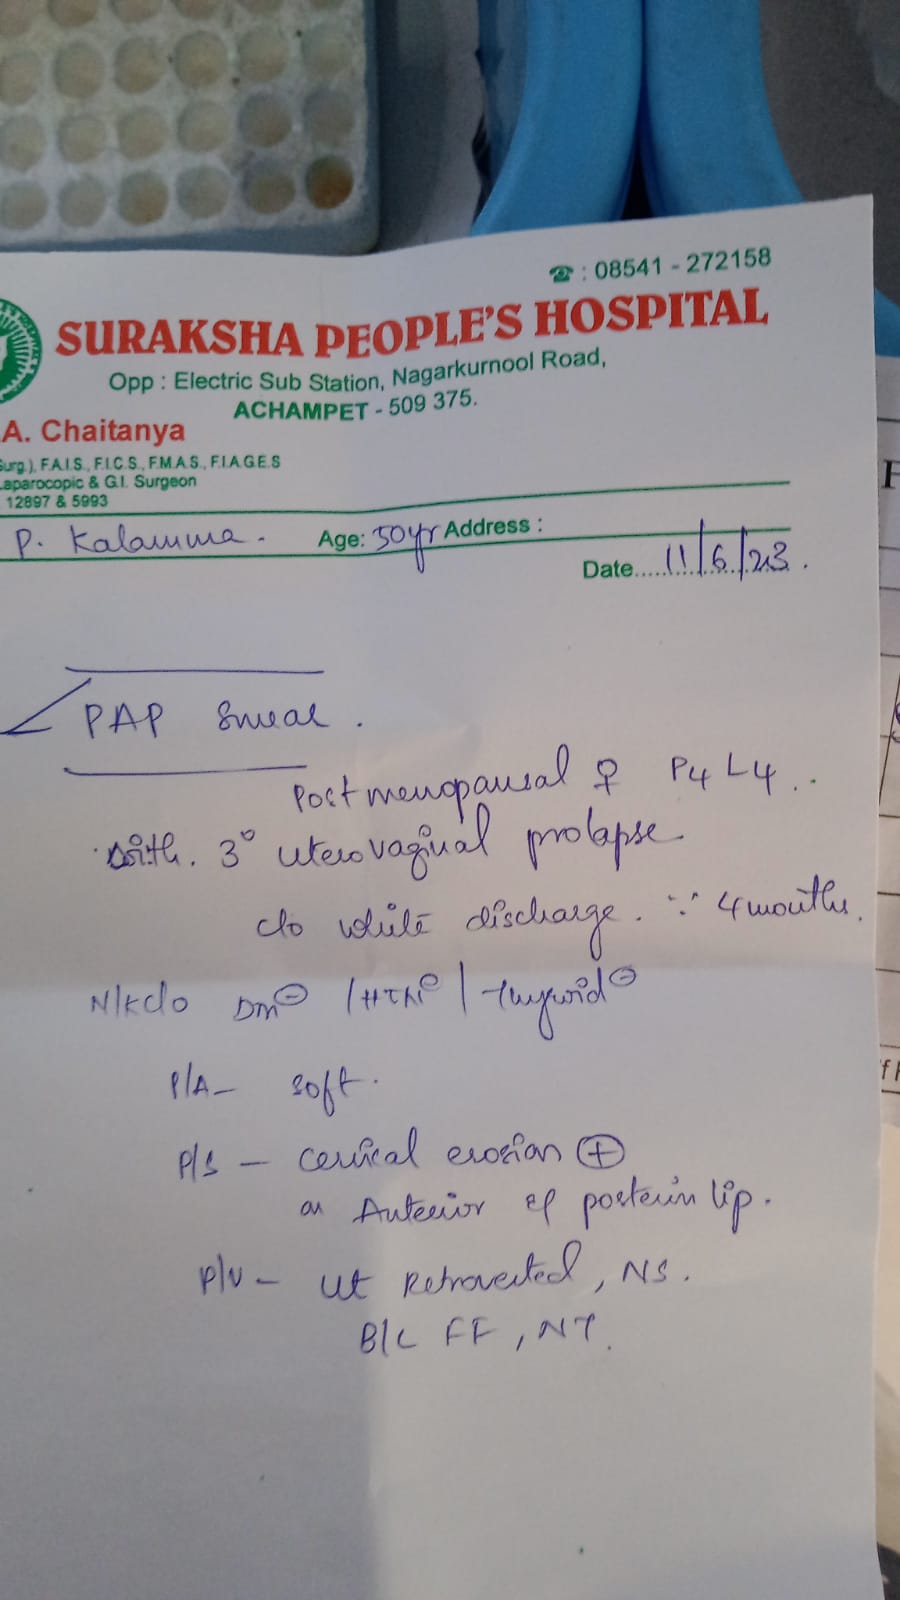 ☎ : 08541 - 272158
SURAKSHA PEOPLE'S HOSPITAL
Opp : Electric Sub Station, Nagarkurnool Road,
ACHAMPET - 509 375.
A. Chaitanya
Surg.), F.A.I.S., F.I.C.S., F.M.A.S., F.I.A.G.E.S
Laparocopic & G.I. Surgeon
12897 & 5993
P. Kalamma. Age: 50yr Address :
Date..... 11/6/23.
PAP Smear.
Postmenopausal ♀ P4 L4..
with. 3° uterovaginal prolapse
c/o white discharge. ∵ 4 months.
N/kc/o DM⊖ /HTN⊖ / Thyroid⊖
P/A- soft.
P/S - cervical erosion ⊕
on Anterior & posterior lip.
P/V - Ut Retroverted, NS.
B/L FF, NT.